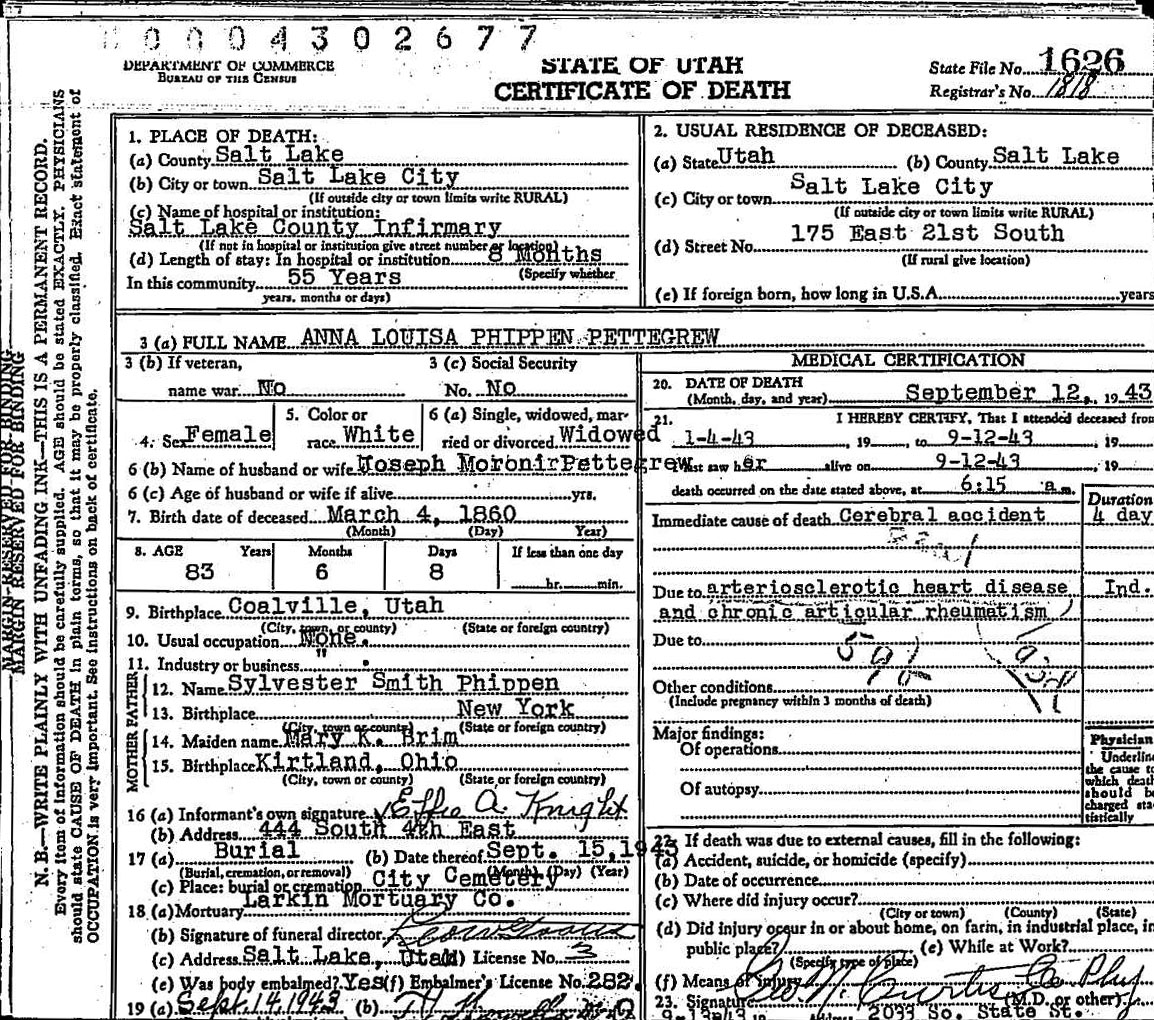 0 0 0 4 3 0 2 6 7 7
DEPARTMENT OF COMMERCE
BUREAU OF THE CENSUS
STATE OF UTAH
CERTIFICATE OF DEATH
State File No. 1626
Registrar's No. 1818
MARGIN RESERVED FOR BINDING
MARGIN RESERVED FOR BINDING
N. B.—WRITE PLAINLY WITH UNFADING INK—THIS IS A PERMANENT RECORD.
Every item of information should be carefully supplied. AGE should be stated EXACTLY. PHYSICIANS
should state CAUSE OF DEATH in plain terms, so that it may be properly classified. Exact statement of
OCCUPATION is very important. See instructions on back of certificate.
1. PLACE OF DEATH:
(a) County Salt Lake
(b) City or town Salt Lake City
(If outside city or town limits write RURAL)
(c) Name of hospital or institution:
Salt Lake County Infirmary
(If not in hospital or institution give street number or location)
(d) Length of stay: In hospital or institution 8 Months
In this community 55 Years (Specify whether
years, months or days)
2. USUAL RESIDENCE OF DECEASED:
(a) State Utah (b) County Salt Lake
(c) City or town Salt Lake City
(If outside city or town limits write RURAL)
(d) Street No. 175 East 21st South
(If rural give location)
(e) If foreign born, how long in U.S.A. years
3 (a) FULL NAME ANNA LOUISA PHIPPEN PETTEGREW
3 (b) If veteran, 3 (c) Social Security
name war No No. No
4. Sex Female 5. Color or race White 6 (a) Single, widowed, married or divorced. Widowed
6 (b) Name of husband or wife Joseph Moroni Pettegrew
6 (c) Age of husband or wife if alive yrs.
7. Birth date of deceased March 4, 1860
(Month) (Day) Year)
8. AGE Years Months Days If less than one day
83 6 8 hr. min.
9. Birthplace Coalville, Utah
(City, town, or county) (State or foreign country)
10. Usual occupation None.
11. Industry or business " .
FATHER
12. Name Sylvester Smith Phippen
13. Birthplace New York
(City, town or county) (State or foreign country)
MOTHER
14. Maiden name Mary K. Brim
15. Birthplace Kirtland, Ohio
(City, town or county) (State or foreign country)
16 (a) Informant's own signature Effie A. Knight
(b) Address 444 South 4th East
17 (a) Burial (b) Date thereof Sept. 15, 1943
(Burial, cremation, or removal) (Month) (Day) (Year)
(c) Place: burial or cremation City Cemetery
18 (a) Mortuary Larkin Mortuary Co.
(b) Signature of funeral director
(c) Address Salt Lake, Utah (d) License No. 3
(e) Was body embalmed? Yes (f) Embalmer's License No. 282
19 (a) Sept. 14, 1943 (b)
MEDICAL CERTIFICATION
20. DATE OF DEATH
(Month, day, and year) September 12, 19 43
21. I HEREBY CERTIFY, That I attended deceased from
1-4-43, 19 , to 9-12-43, 19
I last saw her alive on 9-12-43, 19
death occurred on the date stated above, at 6:15 a.m.
Duration
Immediate cause of death Cerebral accident 4 day
Due to arteriosclerotic heart disease Ind.
and chronic articular rheumatism
Due to
Other conditions
(Include pregnancy within 3 months of death)
Major findings:
Of operations
Of autopsy
Physician
Underline
the cause to
which death
should be
charged sta-
tistically
22. If death was due to external causes, fill in the following:
(a) Accident, suicide, or homicide (specify)
(b) Date of occurrence
(c) Where did injury occur?
(City or town) (County) (State)
(d) Did injury occur in or about home, on farm, in industrial place, in
public place? (e) While at Work?
(Specify type of place)
(f) Means of injury
23. Signature (M.D. or other)
9-13-43 19 Address 2033 So. State St.